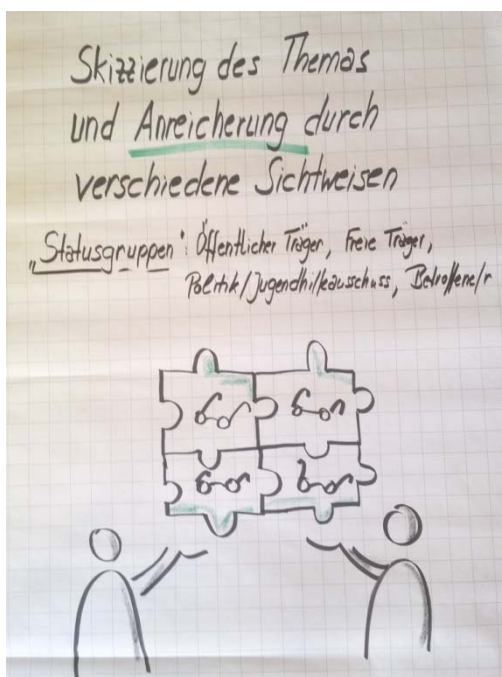 Skizzierung des Themas
und Anreicherung durch
verschiedene Sichtweisen
„Statusgruppen“: Öffentlicher Träger, Freie Träger,
Politik/Jugendhilfeausschuss, Betroffene/r